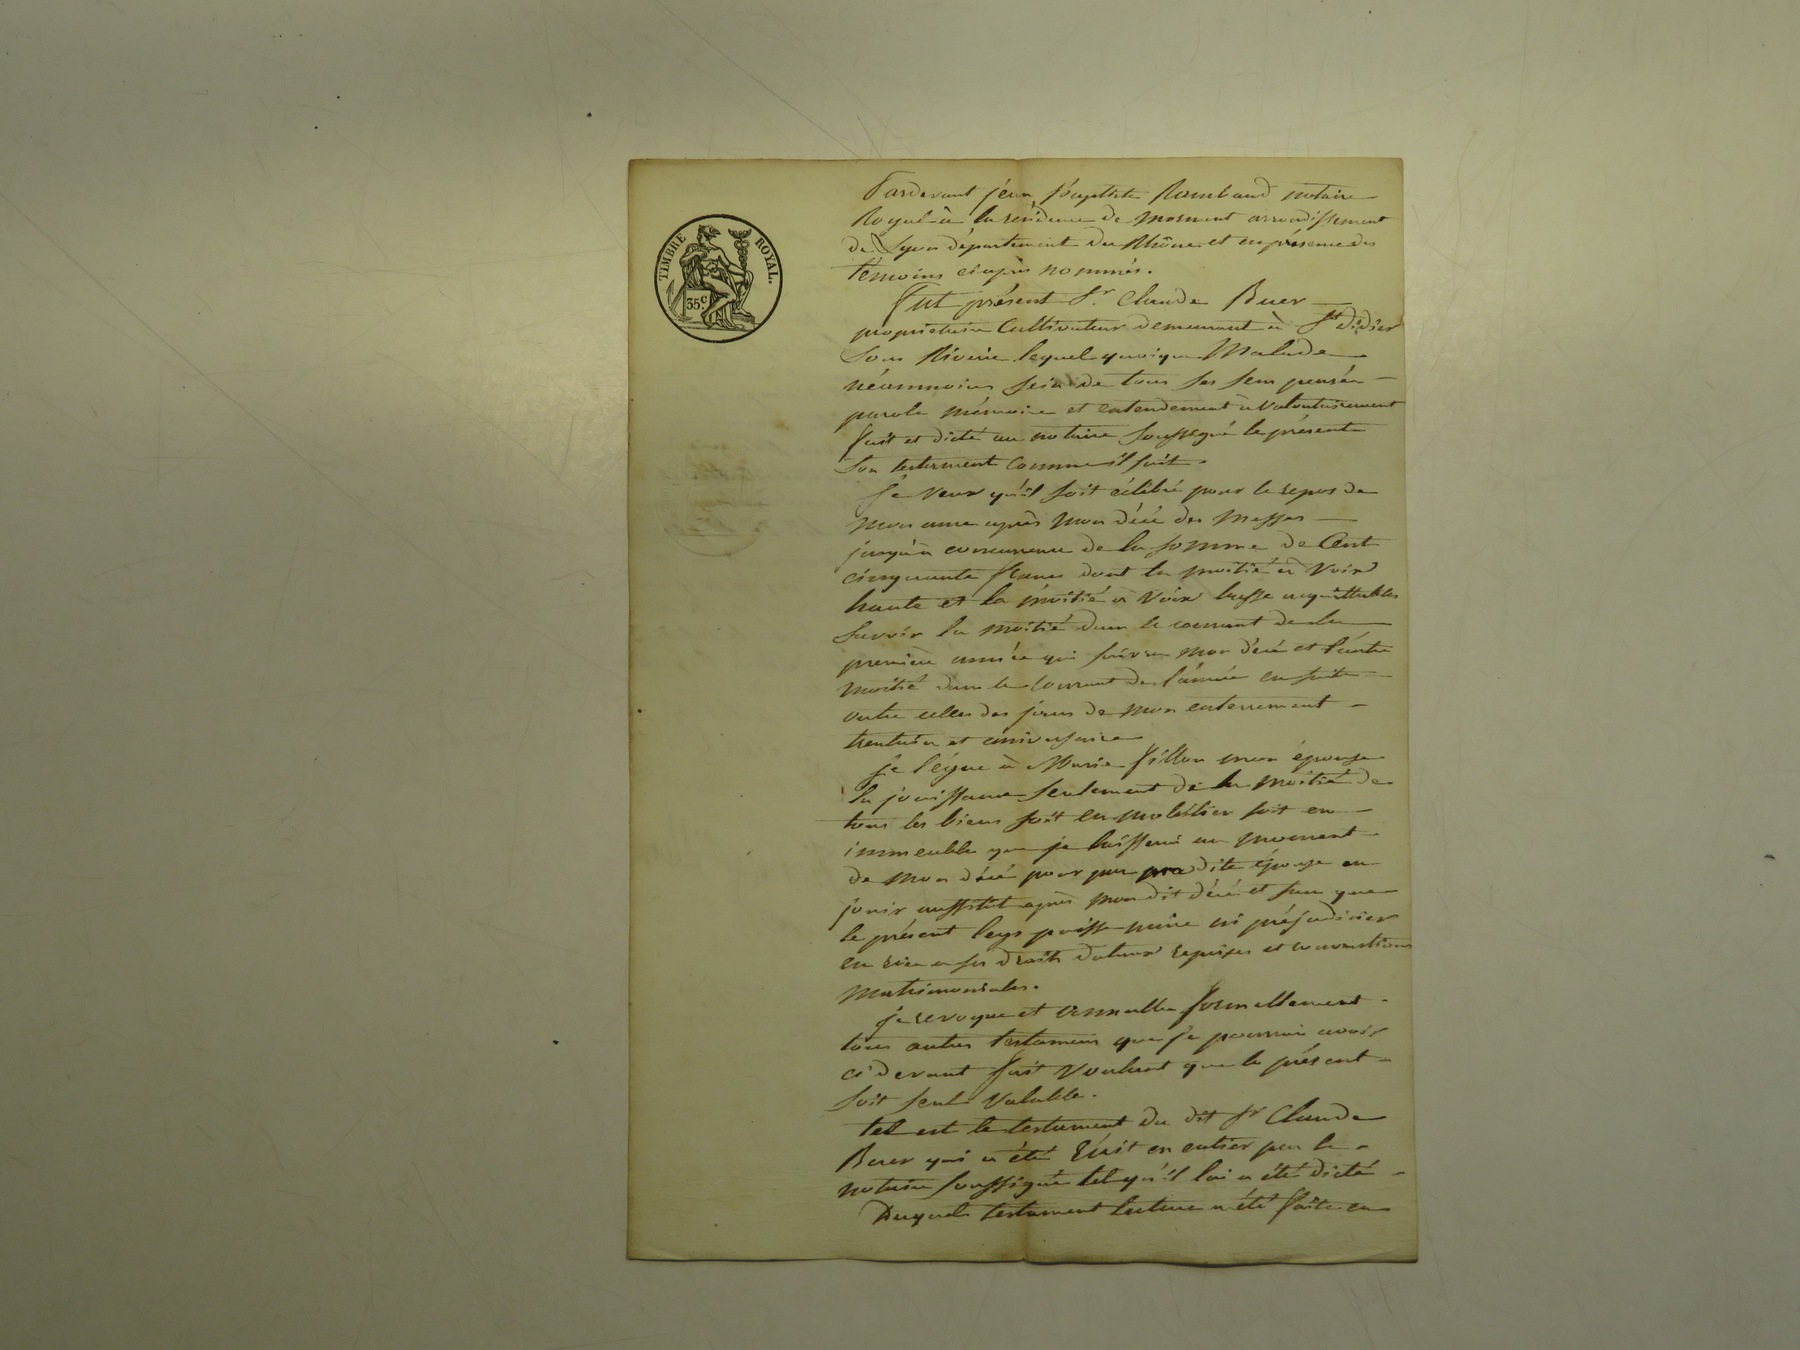 TIMBRE ROYAL.
35c
Pardevant jean Baptiste Rambaud notaire
Royal à la residence de mornant arrondissement
de Lyon département du Rhône et en présence des
témoins ci après nommés.
Fut présent Sr. Claude Buer
propriétaire Cultivateur demeurant à St didier
Sous Riverie lequel quoique Malade
néanmoins sein de tous ses sens pensée
parole mémoire et entendement a volontairement
fait et dicté au notaire soussigné le présent
son testament comme il suit.
Je veux qu'il soit célébré pour le repos de
mon ame après mon décé des Messes
jusqu'à concurrence de la somme de Cent
cinquante francs dont la moitié à Voix
haute et la moitié à Voix basse acquittables
savoir la moitié dans le courrant de la
première année qui suivra mon décé et l'autre
moitié dans le courrant de l'année en suite
outre celles des jours de mon enterrement
trentain et aniversaire
je légue à Marie fillon mon épouse
la jouissance seulement de la moitié de
tous les biens soit en mobilier soit en
immeuble que je laisserai au moment
de mon décé pour par ma dite épouse en
jouir aussitot après mon dit décé et sans que
le présent legs puisse nuire ni préjudicier
en rien a ses droits dotaux reprises et conventions
Matrimoniales.
je revoque et annulle formellement
tous autres testamens que je pourrai avoir
ci devant fait voulant que le présent
soit seul valable.
tel est le testament du dit Sr Claude
Buer qui a été écrit en entier par le
notaire soussigné tel qu'il lui a été dicté
Duquel testament lecture a été faite en